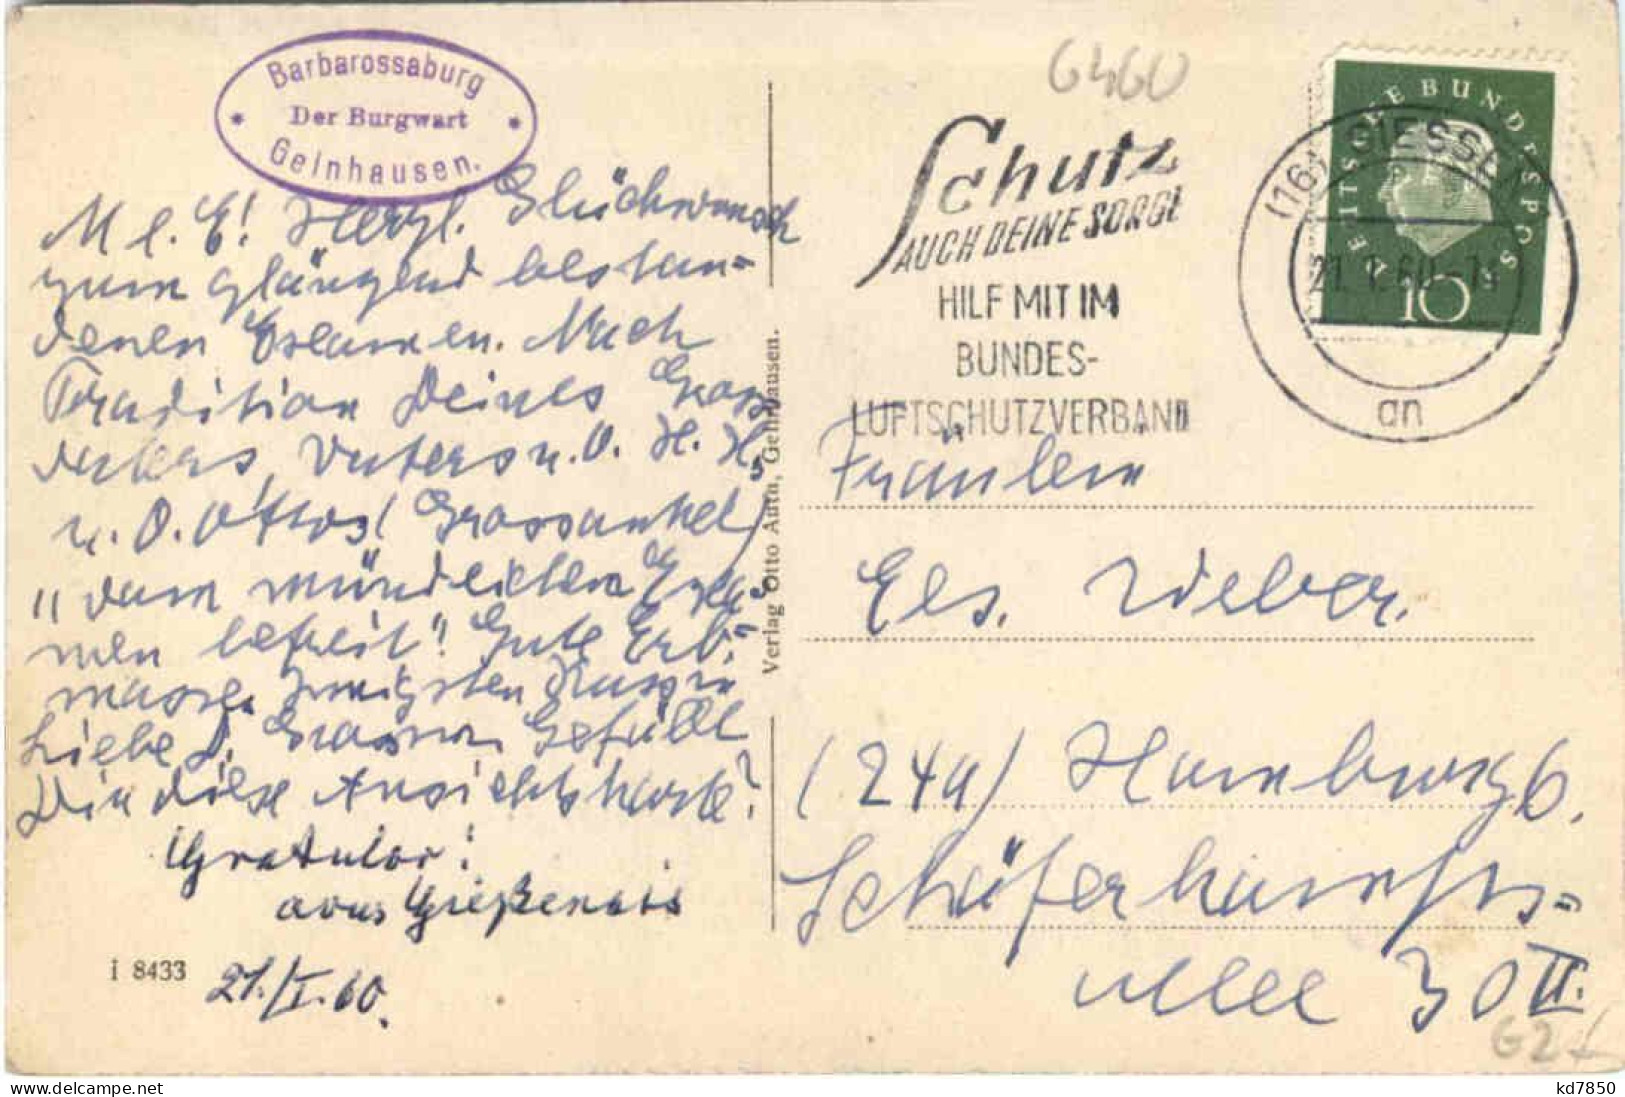 Barbarossaburg
* Der Burgwart *
Gelnhausen.
M l. E! Herzl. Glückwunsch
zum glänzend bestan-
denen Examen. Nach
Tradition Deines Gross
vaters, Vaters u. O. H. H.
u. O. Ottos (Grossonkel)
"vom mündlichen Exa-
men befreit"! Gute Erb-
masse.
Liebe Gefällt
Dir diese Ansichtskarte?
Gratulor!
21./I. 60.
i 8433
Verlag Otto Auth, Gelnhausen.
6460
Schutz
AUCH DEINE SORGE
HILF MIT IM
BUNDES-
LUFTSCHUTZVERBAND
DEUTSCHE BUNDESPOST
10
(16) GIESSEN
21.1.60
an
Fräulein
Els. Weber.
(24a) Hamburg 6.
Schäferkamps-
allee 30 II.
62
kd7850